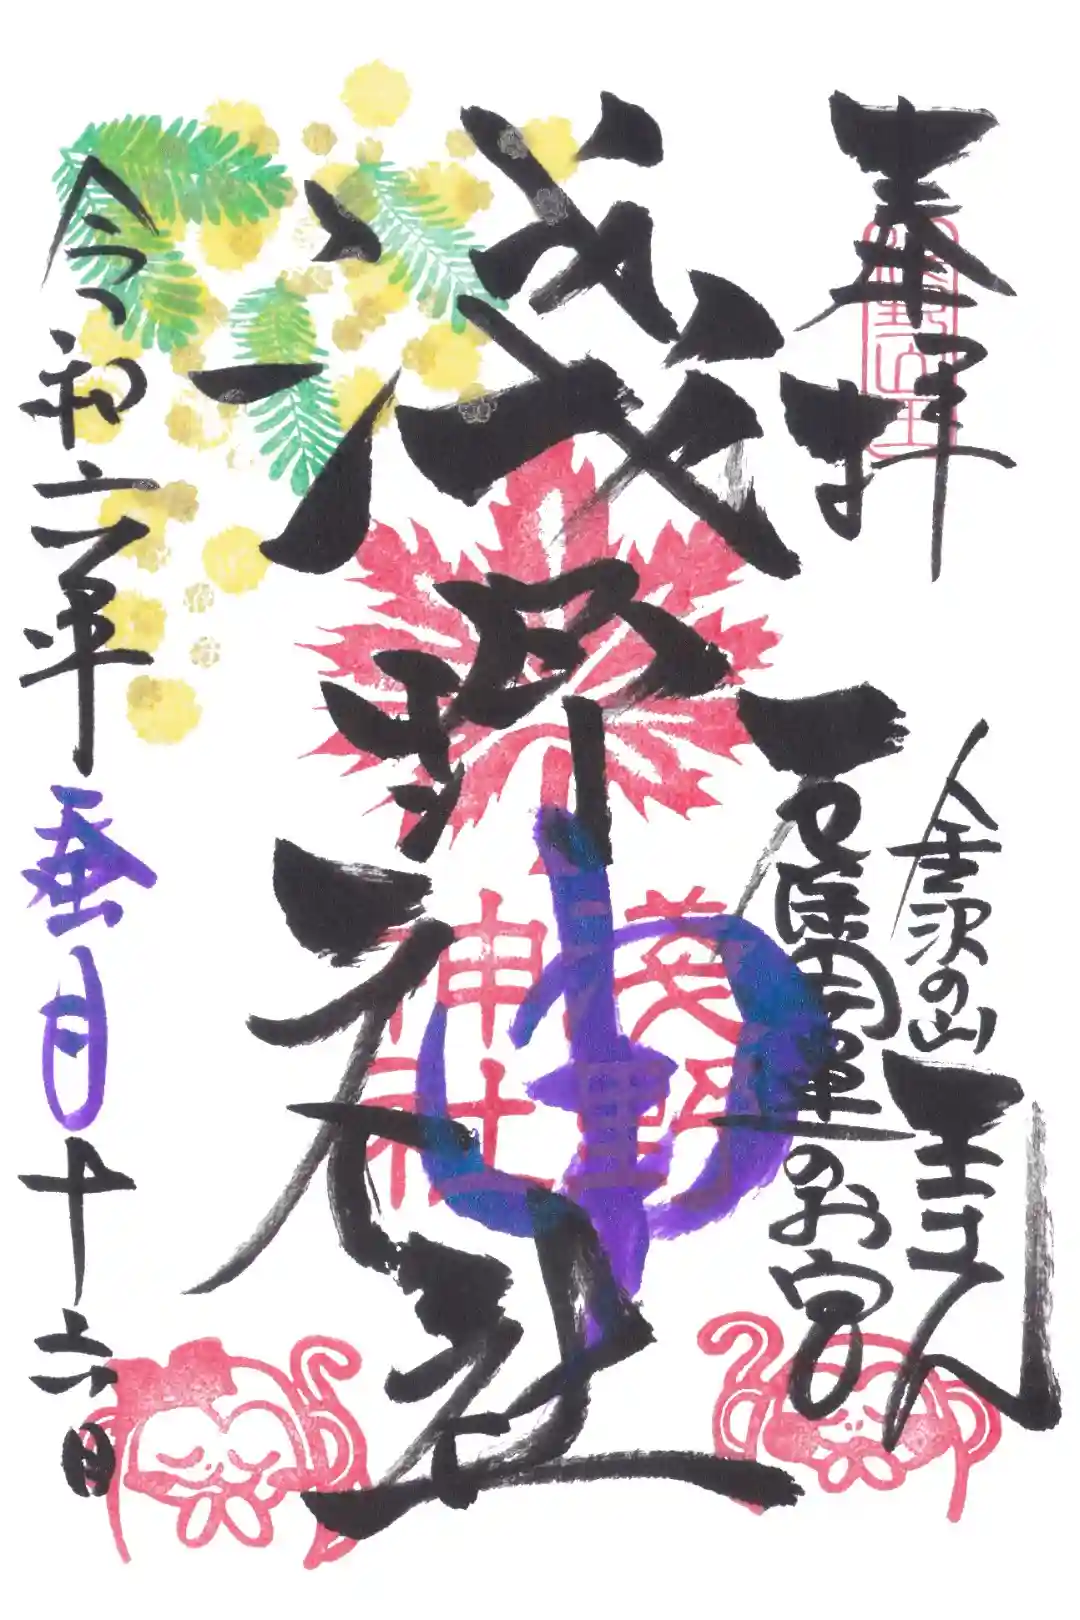 奉拝
金沢の山王さん
厄除開運のお宮
浅野神社
浅野
神社
令和六年蚕月十六日